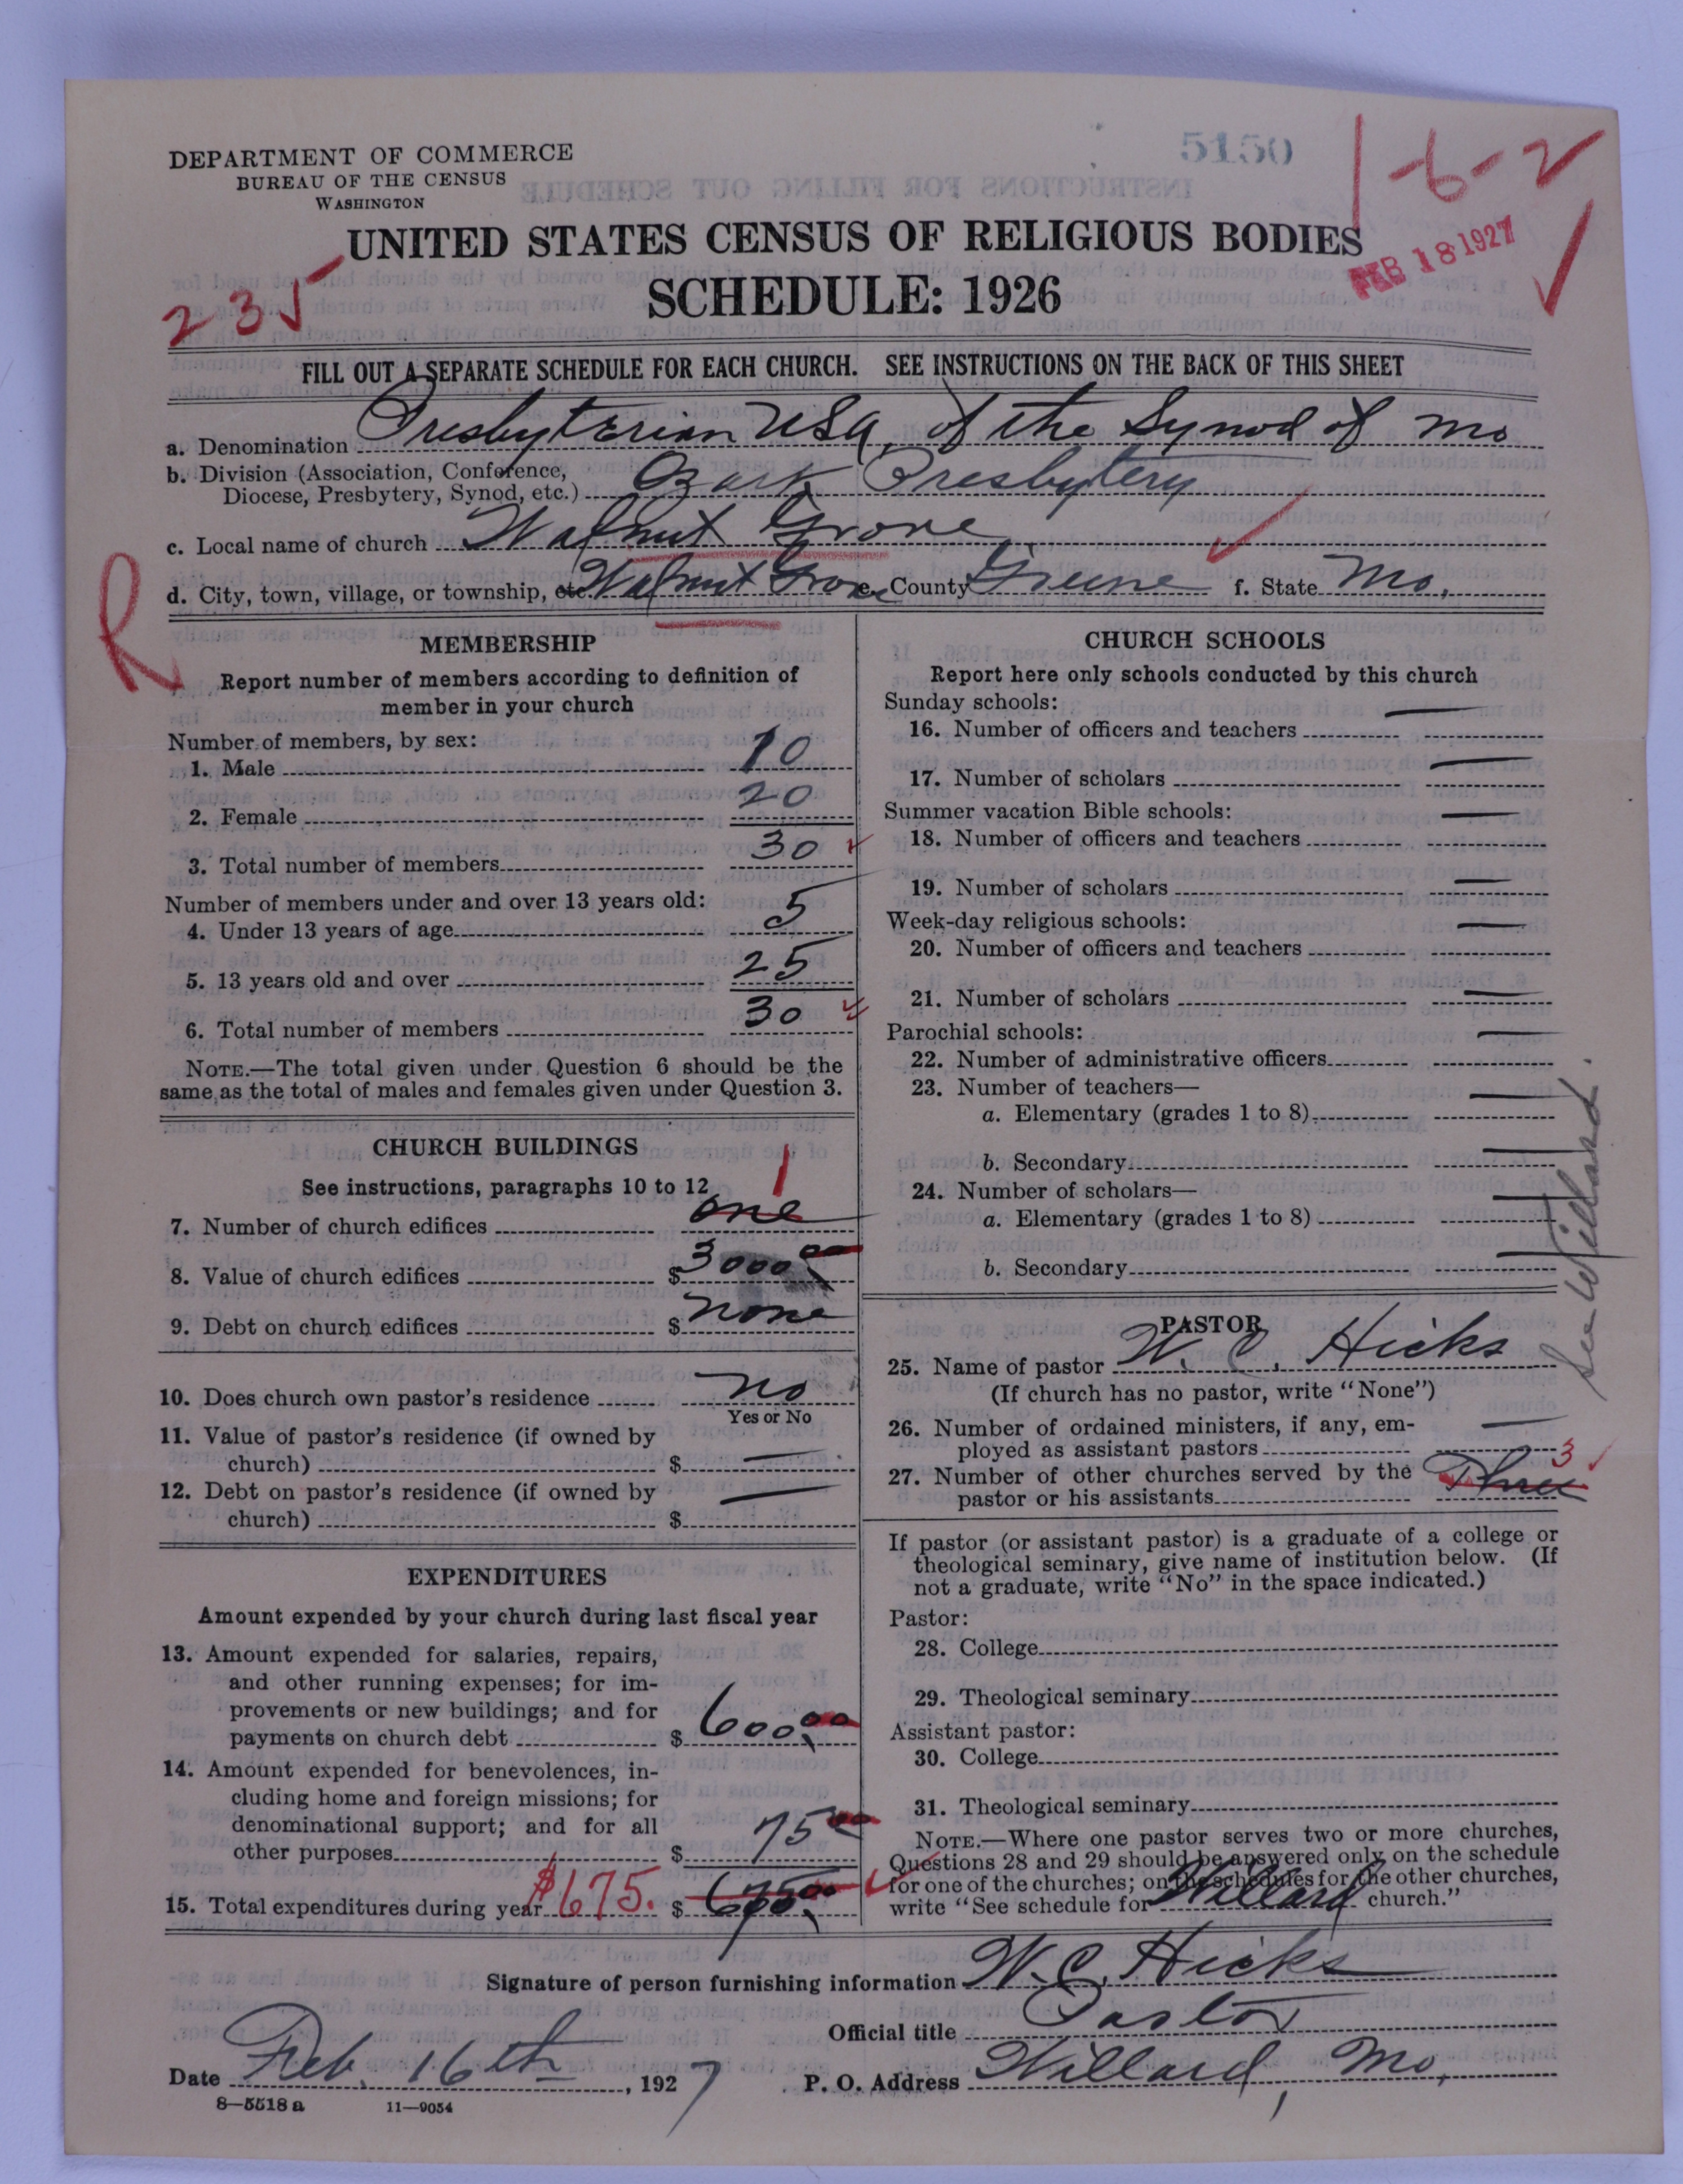 DEPARTMENT OF COMMERCE
BUREAU OF THE CENSUS
WASHINGTON
5150
1-6-2
UNITED STATES CENSUS OF RELIGIOUS BODIES
FEB 18 1927
235
SCHEDULE: 1926
FILL OUT A SEPARATE SCHEDULE FOR EACH CHURCH. SEE INSTRUCTIONS ON THE BACK OF THIS SHEET
a. Denomination Presbyterian USA, of the Synod of Mo
b. Division (Association, Conference,
Diocese, Presbytery, Synod, etc.) Ozark Presbytery
c. Local name of church Walnut Grove
d. City, town, village, or township, etc. Walnut Grove e. County Greene f. State Mo.
R
MEMBERSHIP
Report number of members according to definition of
member in your church
Number of members, by sex:
1. Male 10
2. Female 20
3. Total number of members 30
Number of members under and over 13 years old:
4. Under 13 years of age 5
5. 13 years old and over 25
6. Total number of members 30
NOTE.—The total given under Question 6 should be the
same as the total of males and females given under Question 3.
CHURCH BUILDINGS
See instructions, paragraphs 10 to 12
1
7. Number of church edifices one
8. Value of church edifices $ 3000.00
9. Debt on church edifices $ none
10. Does church own pastor's residence no
Yes or No
11. Value of pastor's residence (if owned by
church) $ —
12. Debt on pastor's residence (if owned by
church) $ —
EXPENDITURES
Amount expended by your church during last fiscal year
13. Amount expended for salaries, repairs,
and other running expenses; for im-
provements or new buildings; and for
payments on church debt $ 600.00
14. Amount expended for benevolences, in-
cluding home and foreign missions; for
denominational support; and for all
other purposes $ 75.00
15. Total expenditures during year $675. $ 675.00
CHURCH SCHOOLS
Report here only schools conducted by this church
Sunday schools:
16. Number of officers and teachers —
17. Number of scholars —
Summer vacation Bible schools:
18. Number of officers and teachers —
19. Number of scholars —
Week-day religious schools:
20. Number of officers and teachers —
21. Number of scholars —
Parochial schools:
22. Number of administrative officers —
23. Number of teachers—
a. Elementary (grades 1 to 8) —
b. Secondary —
24. Number of scholars—
a. Elementary (grades 1 to 8) —
b. Secondary —
See Willard.
PASTOR
25. Name of pastor W. C. Hicks
(If church has no pastor, write "None")
26. Number of ordained ministers, if any, em-
ployed as assistant pastors —
27. Number of other churches served by the
pastor or his assistants Three 3
If pastor (or assistant pastor) is a graduate of a college or
theological seminary, give name of institution below. (If
not a graduate, write "No" in the space indicated.)
Pastor:
28. College
29. Theological seminary
Assistant pastor:
30. College
31. Theological seminary
NOTE.—Where one pastor serves two or more churches,
Questions 28 and 29 should be answered only on the schedule
for one of the churches; on the schedules for the other churches,
write "See schedule for Willard church."
Signature of person furnishing information W. C. Hicks
Official title Pastor
Date Feb. 16th, 1927 P. O. Address Willard, Mo.
8—5518 a 11—9054